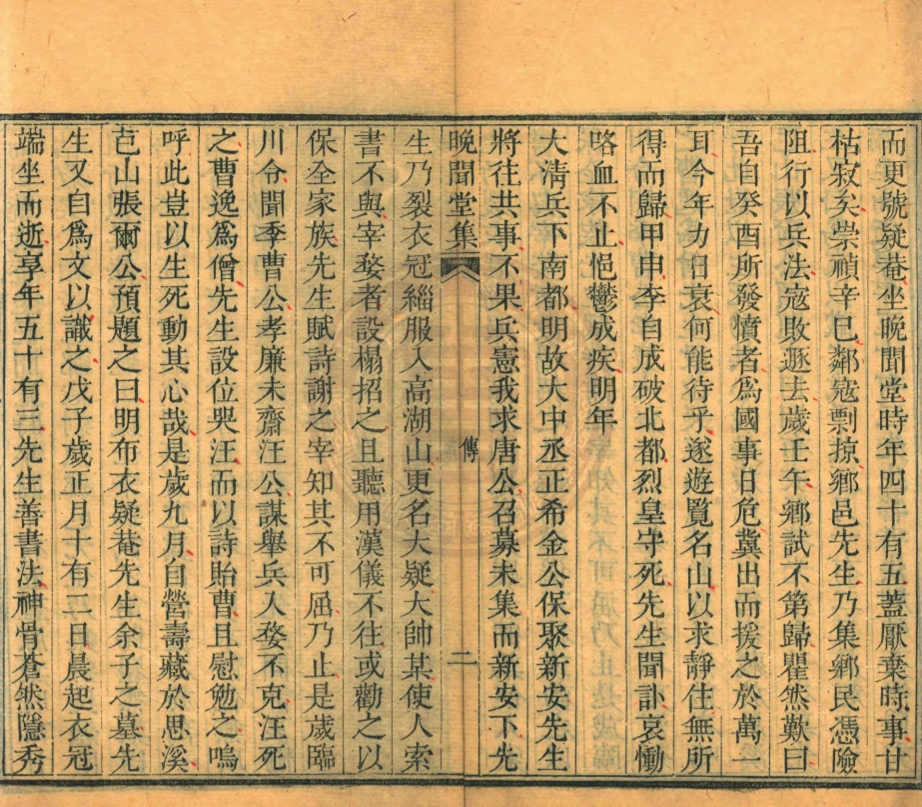 而更號疑菴坐晚聞堂時年四十有五蓋厭棄時事甘
枯寂矣崇禎辛巳鄰寇剽掠鄉邑先生乃集鄉民憑險
阻行以兵法寇敗遯去歲壬午鄉試不第歸瞿然歎曰
吾自癸酉所發憤者爲國事日危冀出而援之於萬一
耳今年力日衰何能待乎遂遊覽名山以求靜住無所
得而歸甲申李自成破北都烈皇守死先生聞訃哀慟
咯血不止悒鬱成疾明年
大淸兵下南都明故大中丞正希金公保聚新安先生
將往共事不果兵憲我求唐公召募未集而新安下先
晚聞堂集
傳
二
生乃裂衣冠緇服入高湖山更名大疑大帥某使人索
書不與宰婺者設榻招之且聽用漢儀不往或勸之以
保全家族先生賦詩謝之宰知其不可屈乃止是歲臨
川令聞李曹公孝廉未齋汪公謀舉兵入婺不克汪死
之曹逸爲僧先生設位哭汪而以詩貽曹且慰勉之嗚
呼此豈以生死動其心哉是歲九月自營壽藏於思溪
芑山張爾公預題之曰明布衣疑菴先生余子之墓先
生又自爲文以識之戊子歲正月十有二日晨起衣冠
端坐而逝享年五十有三先生善書法神骨蒼然隱秀